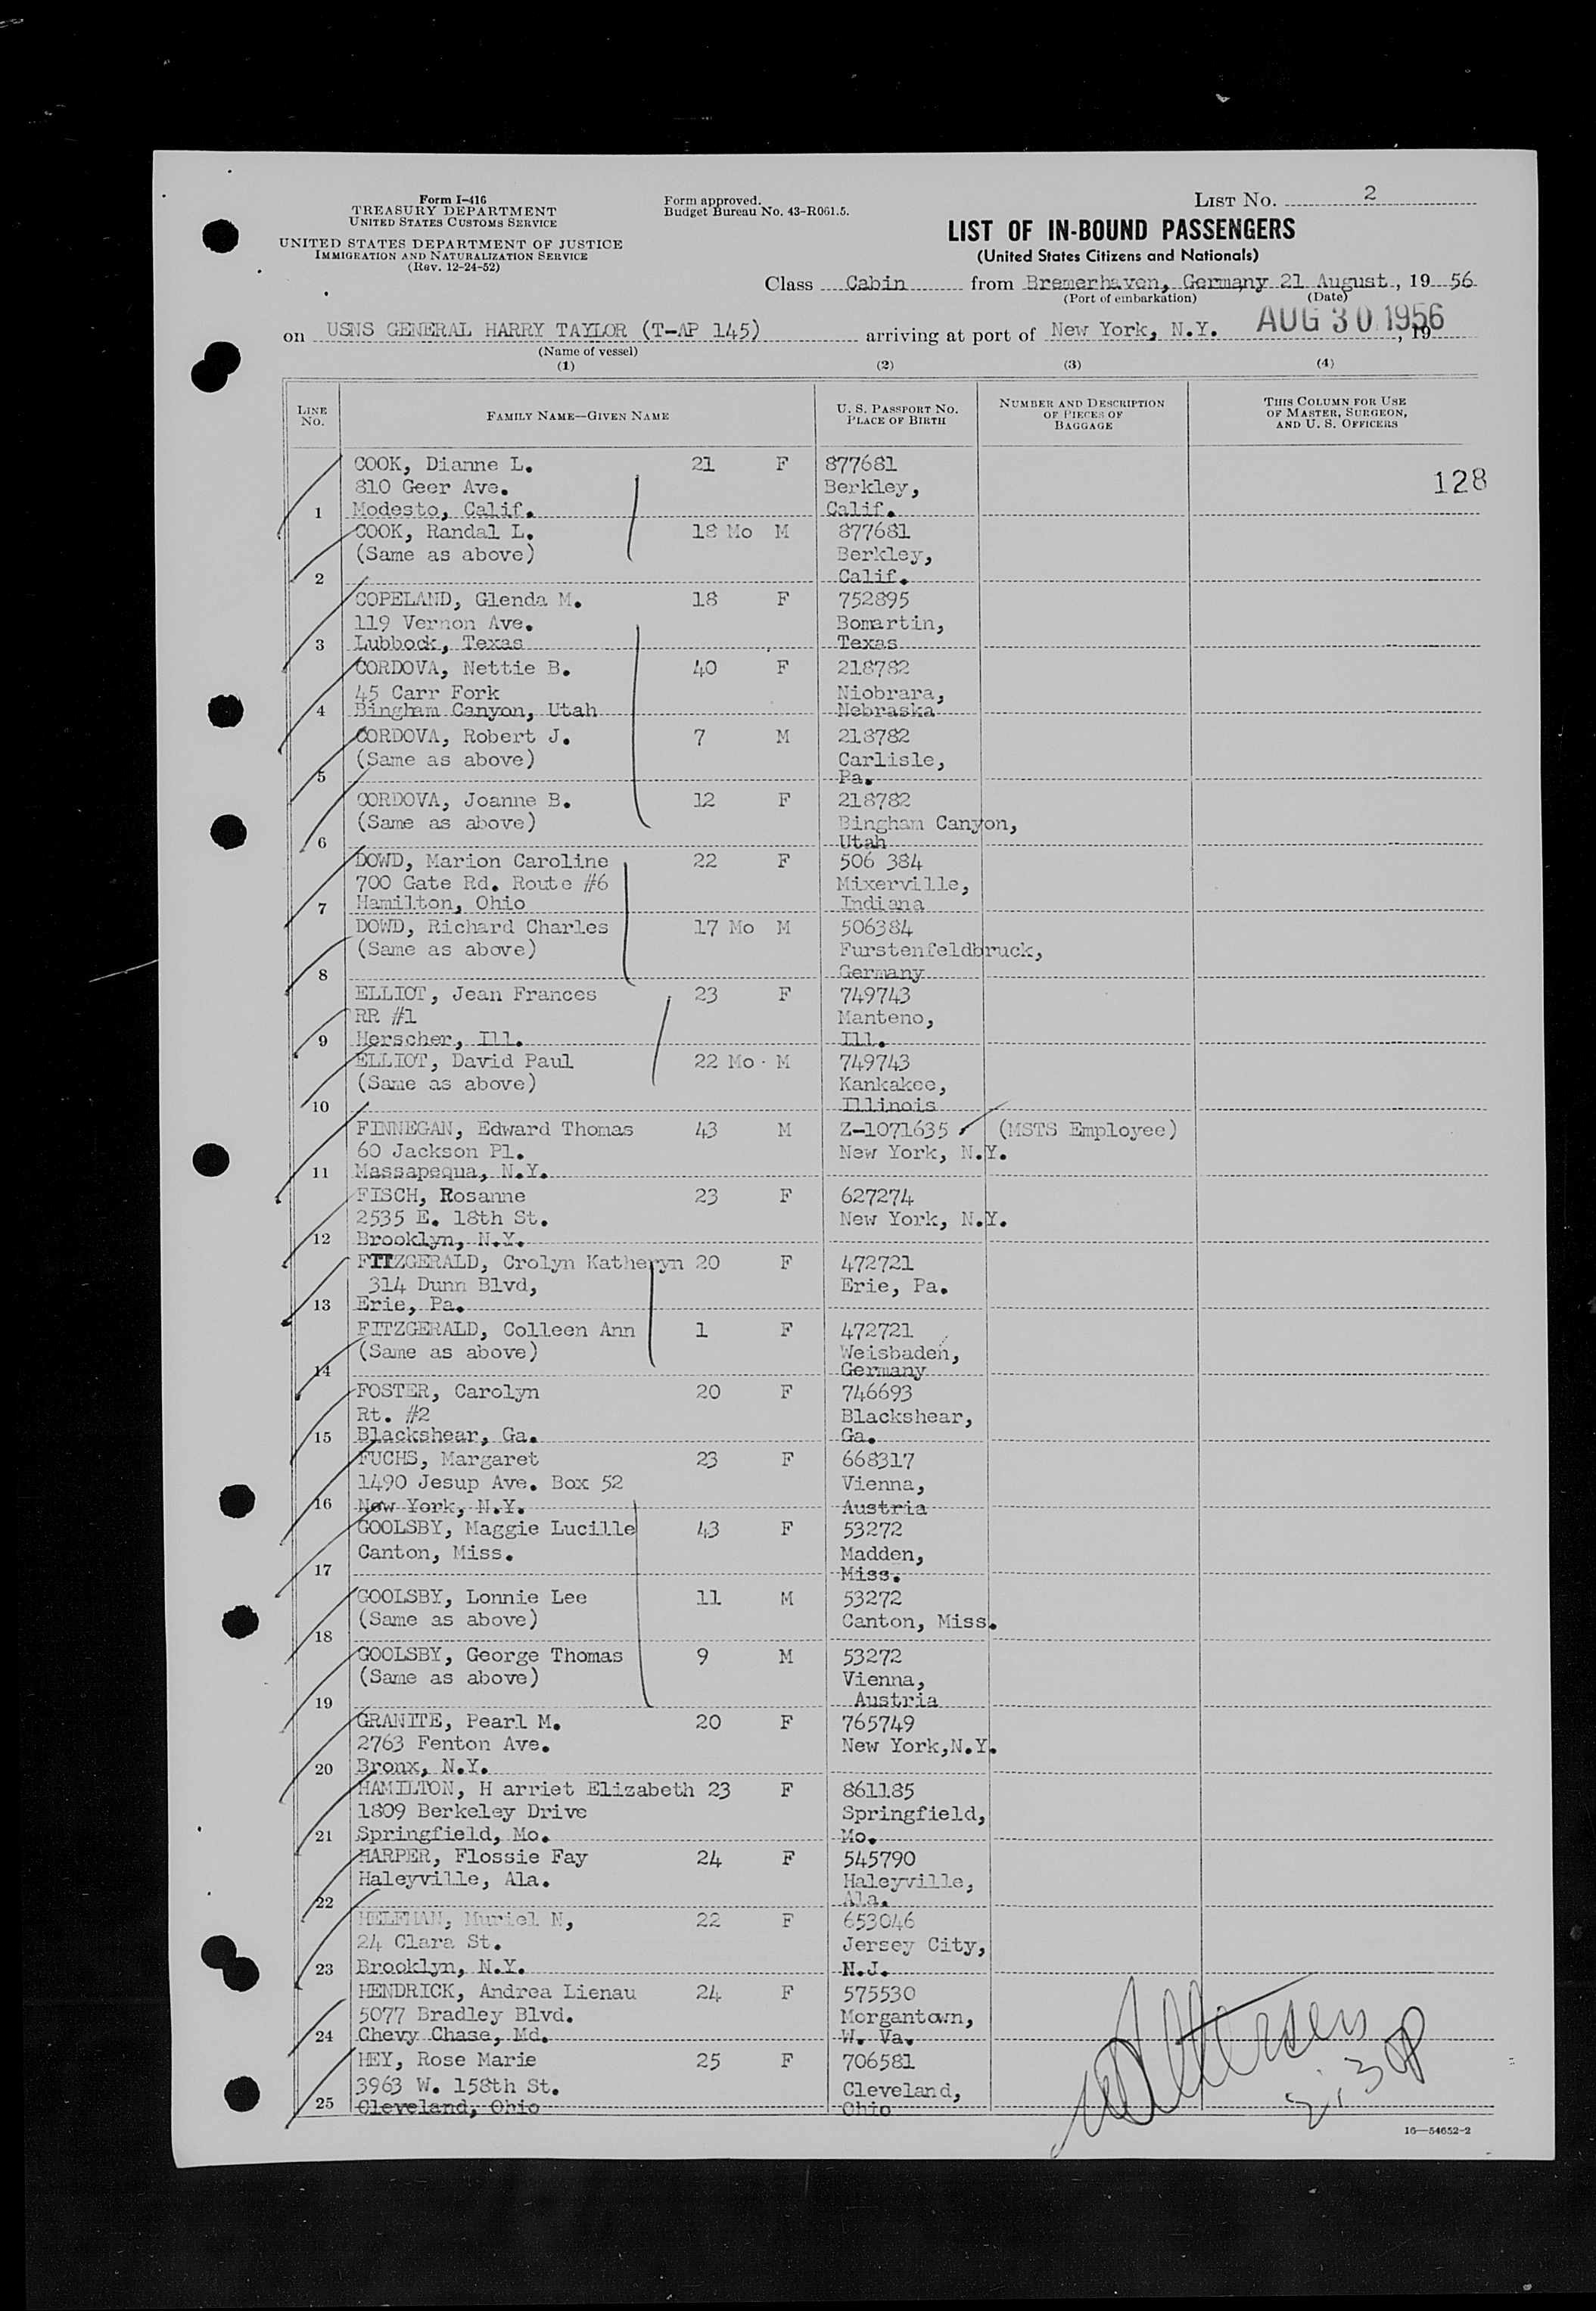 Form I-416
TREASURY DEPARTMENT
UNITED STATES CUSTOMS SERVICE
UNITED STATES DEPARTMENT OF JUSTICE
IMMIGRATION AND NATURALIZATION SERVICE
(Rev. 12-24-52)
Form approved.
Budget Bureau No. 43-R061.5.
LIST No. 2
LIST OF IN-BOUND PASSENGERS
(United States Citizens and Nationals)
Class Cabin from Bremerhaven, Germany 21 August, 19 56
(Port of embarkation) (Date)
on USNS GENERAL HARRY TAYLOR (T-AP 145) arriving at port of New York, N.Y. AUG 30 1956, 19
(Name of vessel)
(1) (2) (3) (4)
LINE No. FAMILY NAME—GIVEN NAME U. S. PASSPORT No. PLACE OF BIRTH NUMBER AND DESCRIPTION OF PIECES OF BAGGAGE THIS COLUMN FOR USE OF MASTER, SURGEON, AND U. S. OFFICERS
COOK, Dianne L. 21 F 877681
810 Geer Ave. Berkley, 128
1 Modesto, Calif. Calif.
COOK, Randal L. 18 Mo M 877681
(Same as above) Berkley,
2 Calif.
COPELAND, Glenda M. 18 F 752895
119 Vernon Ave. Bomartin,
3 Lubbock, Texas Texas
CORDOVA, Nettie B. 40 F 218782
45 Carr Fork Niobrara,
4 Bingham Canyon, Utah Nebraska
CORDOVA, Robert J. 7 M 218782
(Same as above) Carlisle,
5 Pa.
CORDOVA, Joanne B. 12 F 218782
(Same as above) Bingham Canyon,
6 Utah
DOWD, Marion Caroline 22 F 506 384
700 Gate Rd. Route #6 Mixerville,
7 Hamilton, Ohio Indiana
DOWD, Richard Charles 17 Mo M 506384
(Same as above) Furstenfeldbruck,
8 Germany
ELLIOT, Jean Frances 23 F 749743
RR #1 Manteno,
9 Herscher, Ill. Ill.
ELLIOT, David Paul 22 Mo M 749743
(Same as above) Kankakee,
10 Illinois
FINNEGAN, Edward Thomas 43 M Z-1071635 (MSTS Employee)
60 Jackson Pl. New York, N.Y.
11 Massapequa, N.Y.
FISCH, Rosanne 23 F 627274
2535 E. 18th St. New York, N.Y.
12 Brooklyn, N.Y.
FITZGERALD, Crolyn Katheryn 20 F 472721
314 Dunn Blvd, Erie, Pa.
13 Erie, Pa.
FITZGERALD, Colleen Ann 1 F 472721
(Same as above) Weisbaden,
14 Germany
FOSTER, Carolyn 20 F 746693
Rt. #2 Blackshear,
15 Blackshear, Ga. Ga.
FUCHS, Margaret 23 F 668317
1490 Jesup Ave. Box 52 Vienna,
16 New York, N.Y. Austria
GOOLSBY, Maggie Lucille 43 F 53272
Canton, Miss. Madden,
17 Miss.
GOOLSBY, Lonnie Lee 11 M 53272
(Same as above) Canton, Miss.
18
GOOLSBY, George Thomas 9 M 53272
(Same as above) Vienna,
19 Austria
GRANITE, Pearl M. 20 F 765749
2763 Fenton Ave. New York,N.Y.
20 Bronx, N.Y.
HAMILTON, H arriet Elizabeth 23 F 861185
1809 Berkeley Drive Springfield,
21 Springfield, Mo. Mo.
HARPER, Flossie Fay 24 F 545790
Haleyville, Ala. Haleyville,
22 Ala.
HELFMAN, Muriel N, 22 F 653046
24 Clara St. Jersey City,
23 Brooklyn, N.Y. N.J.
HENDRICK, Andrea Lienau 24 F 575530
5077 Bradley Blvd. Morgantown,
24 Chevy Chase, Md. W. Va.
HEY, Rose Marie 25 F 706581
3963 W. 158th St. Cleveland,
25 Cleveland, Ohio Ohio
16—54652-2